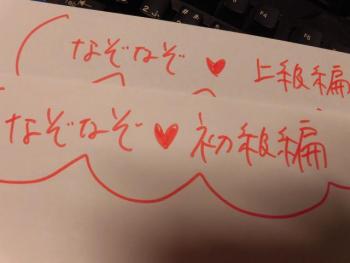 なぞなぞ♥上級編
なぞなぞ♥初級編